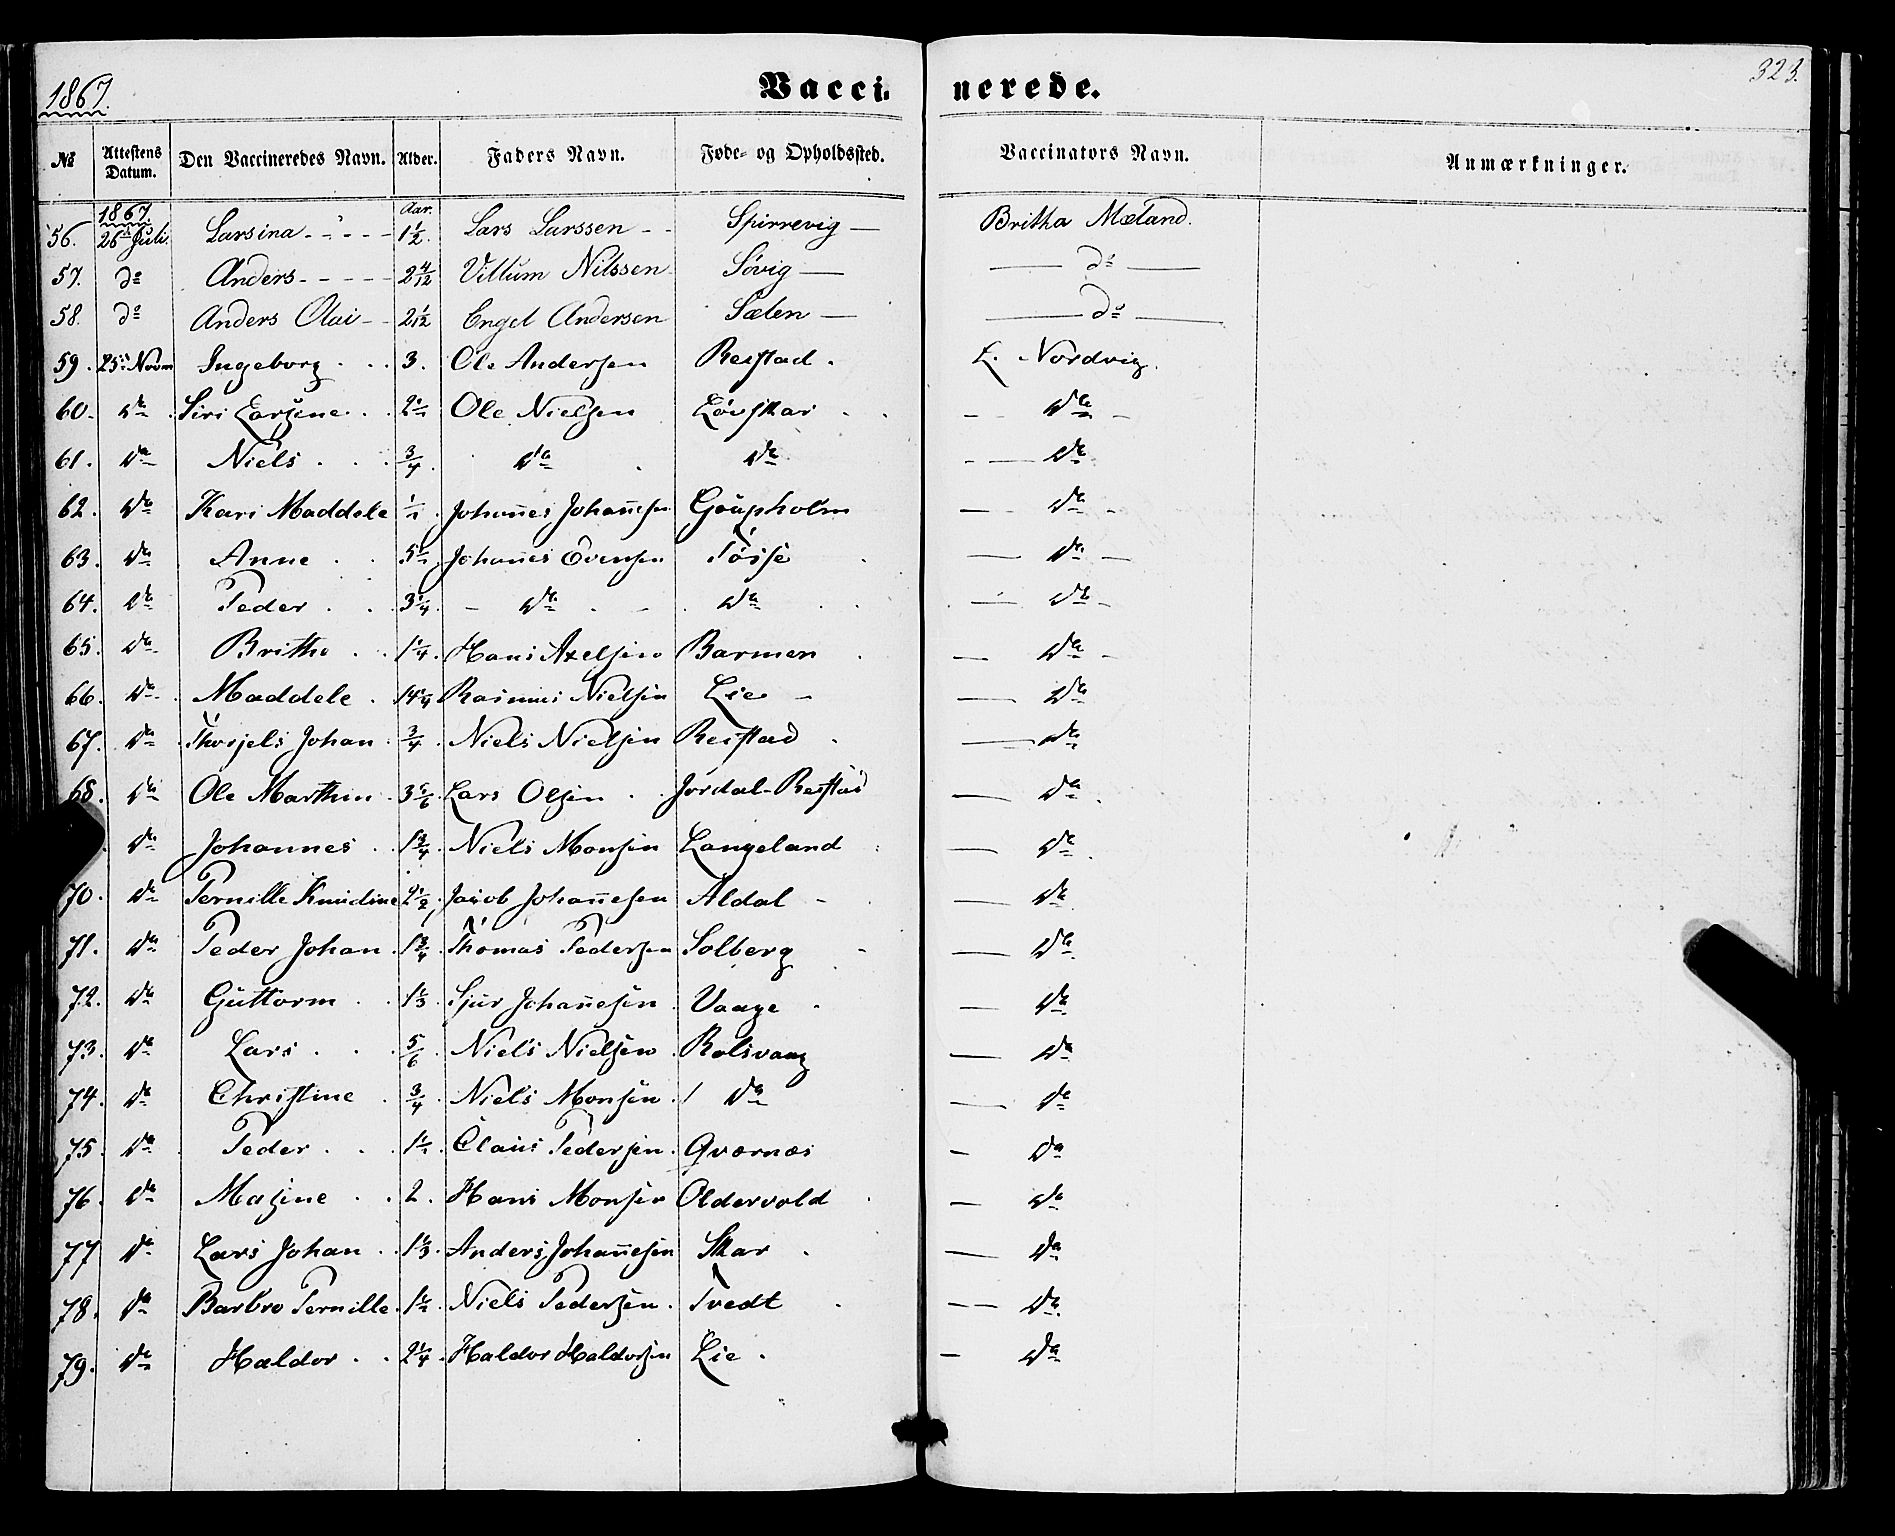 1867.
Vaccinerede.
323.
№ Attestens Datum. Den Vaccineredes Navn. Alder. Faders Navn. Føde- og Opholdssted. Vaccinators Navn. Anmærkninger.
1867. Aar.
56. 26de Juli Larsina 1½. Lars Larssen Spirrevig Britha Mæland.
57. do Anders 2 4/12 Villum Nilssen Søvig — do —
58. do Anders Olai 2 1/12 Engel Andersen Sælen — do —
59. 25de Novm Ingeborg 3. Ole Andersen Restad L. Nordvig.
60. Do Siri Larsine 2½ Ole Nielsen Løvskar Do
61. Do Niels ¾ Do Do Do
62. Do Kari Maddele ½ Johannes Johannesen Gaupholm Do
63. Do Anne 5½ Johannes Evensen Tøsse Do
64. Do Peder 3¼ Do Do Do
65. Do Brithe 1¼ Hans Axelsen Barmen Do
66. Do Maddele 14¼ Rasmus Nielsen Lie Do
67. Do Thorjels Johan ¾ Niels Nielsen Reistad Do
68. Do Ole Marthin 3 1/6 Lars Olsen Jordal-Reistad Do
Do Johannes 1¾ Niels Monsen Langeland Do
70. Do Pernille Knudine 2½ Jacob Johannesen Aldal Do
71. Do Peder Johan 1¾ Thomas Pedersen Solberg Do
72. Do Guttorm 1⅓ Sjur Johannesen Vaage Do
73. Do Lars 5/6 Niels Nielsen Rolsvaag Do
74. Do Christine ¾ Niels Monsen Do Do
75. Do Peder 1½ Claus Pedersen Qværnæs Do
76. Do Masine 2. Hans Monsen Oldervold Do
77 Do Lars Johan 1⅓ Anders Johannesen Skar Do
78. Do Barbro Pernille 1½ Niels Pedersen Tvedt Do
79. Do Haldor 2¼ Haldor Haldorsen Lie Do